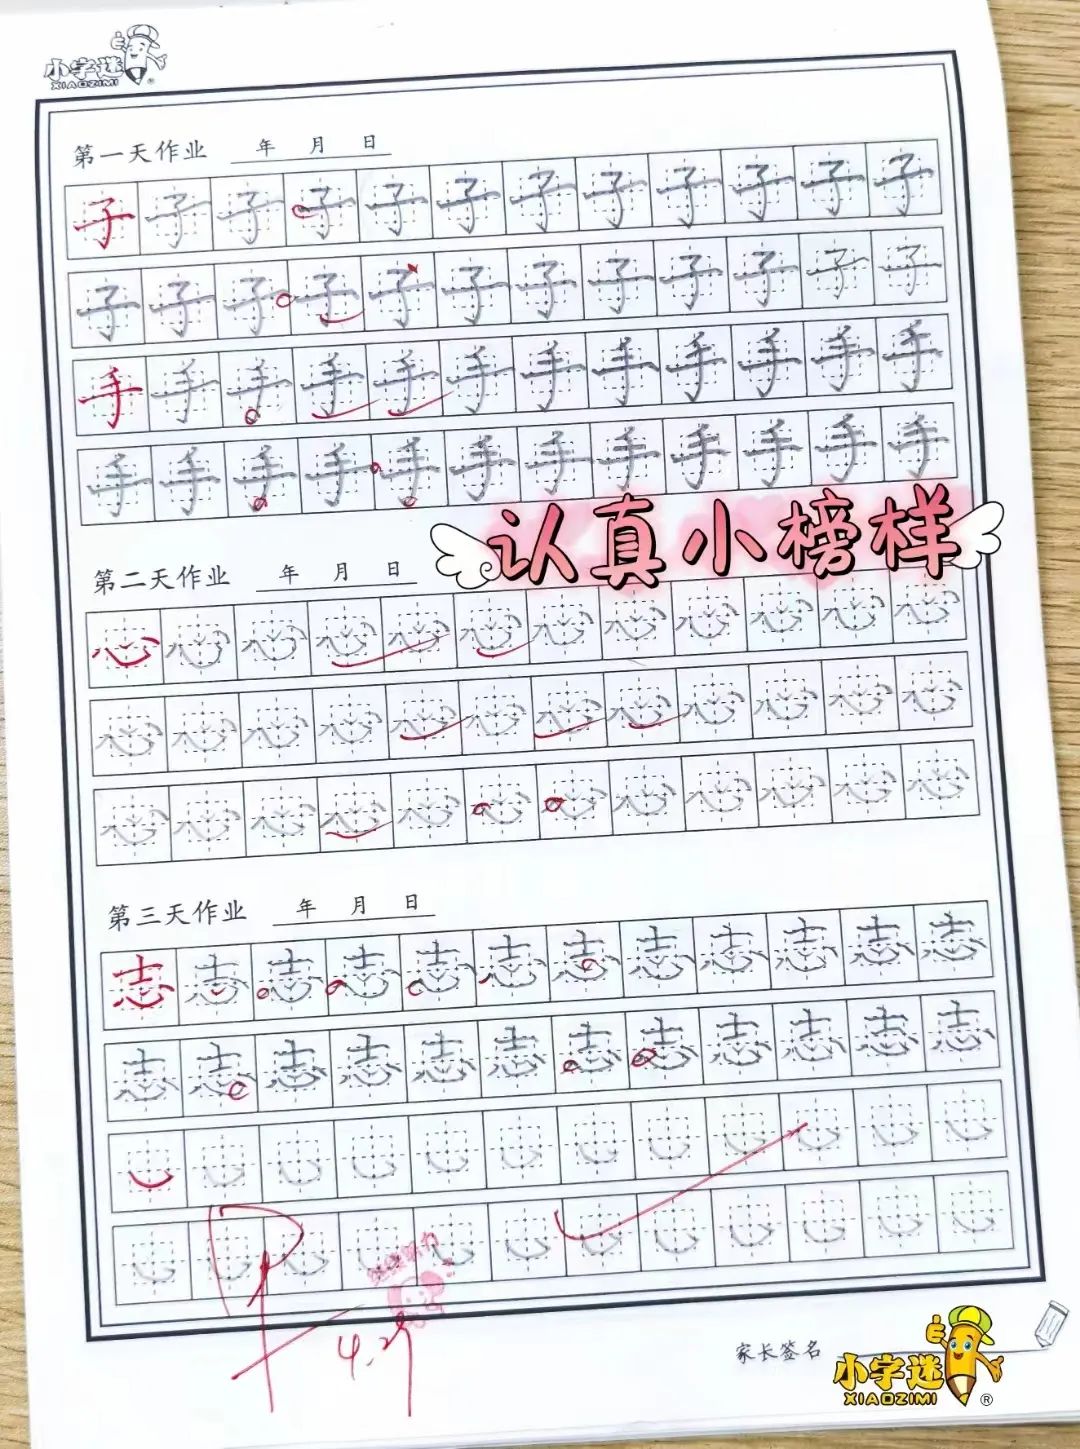 小字迷
XIAOZIMI
第一天作业 年 月 日
子 子 子 子 子 子 子 子 子 子 子 子
子 子 子 子 子 子 子 子 子 子 子 子
手 手 手 手 手 手 手 手 手 手 手 手
手 手 手 手 手 手 手 手 手 手 手 手
认真小榜样
第二天作业 年 月 日
心 心 心 心 心 心 心 心 心 心 心 心
心 心 心 心 心 心 心 心 心 心 心 心
心 心 心 心 心 心 心 心 心 心 心 心
第三天作业 年 月 日
志 志 志 志 志 志 志 志 志 志 志 志
志 志 志 志 志 志 志 志 志 志 志 志
家长签名
小字迷
XIAOZIMI
®